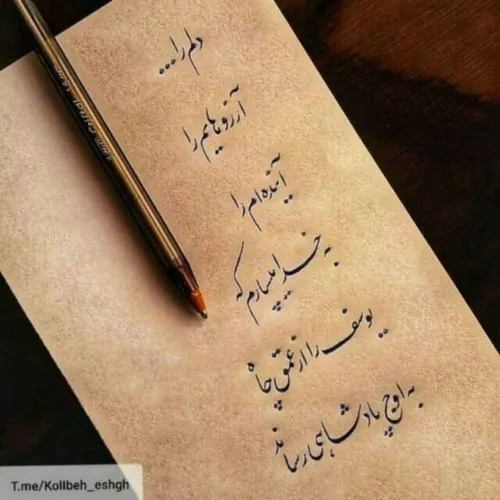 دلم را...
آرزوهایم را
آینده ام را
به خدا میسپارم که
یوسف را از عمق چاه
به اوج پادشاهی رساند
T.me/Kollbeh_eshgh